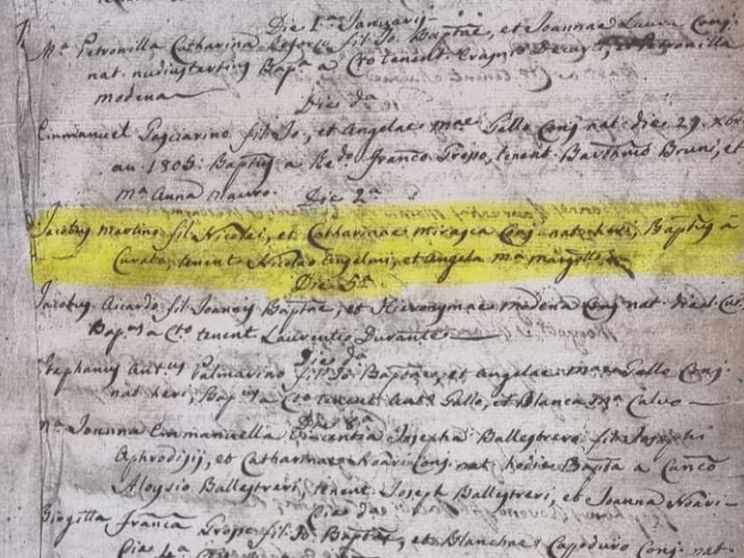 Die 1.ª Januarij
M.ª Petronilla Catharina fil. Jo. Baptæ, et Joannæ Laura Conj.
nat. nudiustertius Bapª a tenent. et Petronilla
modena
Die dª
Emmanuel Pagliarino fil. Jo., et Angelæ Mæ Gallo Conj. nat. die 29. Xbr
an. 1805. Baptus a Redo Franco Tropo, tenent. Barthmo Bruni, et
Mª Anna Mauro.
Die 2ª
Jacobus Martino fil. Nicolai, et Catharinæ Miragea Conj. nat. heri, Baptus a
Curato, tenent. Nicolao Angelmi, et Angela Mª Margotto
Die 5ª
Jacobus Aicardo fil. Joannis Baptæ, et Hieronymæ modena Conj. nat.
Bapus a Cto tenent. Laurentio Durante
Die dª
Stephanus Antus Palmarino fil. Jo. Baptæ, et Angelæ Mæ Gallo Conj.
nat. heri, Bapus a Cto tenent. Antº Gallo, et Blanca Mª Calvo
Die 8ª
Nª Joanna Emmanuella Vincentia Josepha Ballestreri fil. Josephi
Aphrodisij, et Catharinæ Noari Conj. nat. hodie Bapta a Canco
Aloysio Ballestreri, tenent. Joseph Ballestreri, et Joanna Noari
Die dª
Birgitta Franca Tropo fil. Jo. Baptæ, et Blanchæ Capoduro Conj. nat